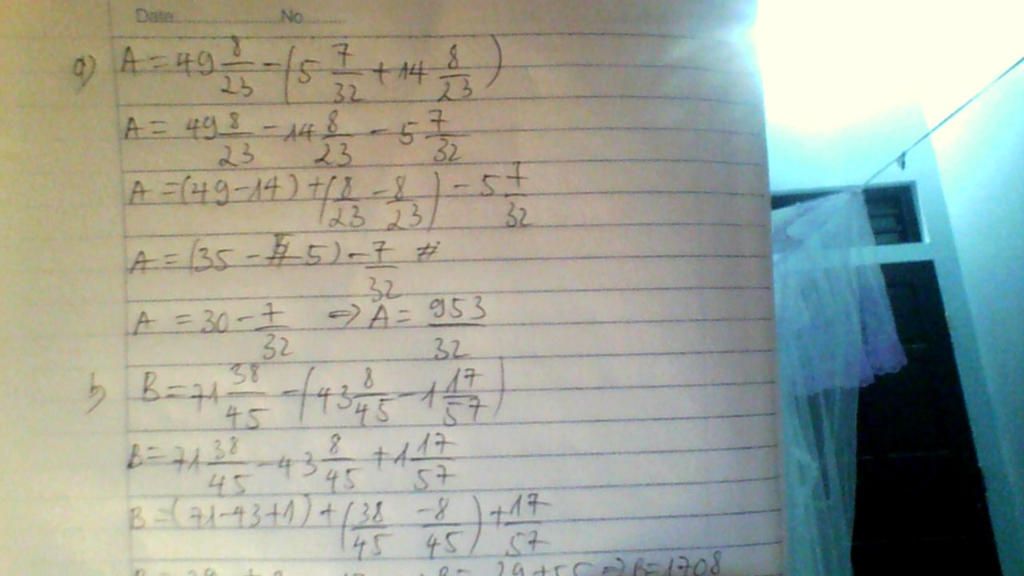 Date No
a) A = 49 8/23 - (5 7/32 + 14 8/23)
A = 49 8/23 - 14 8/23 - 5 7/32
A = (49 - 14) + (8/23 - 8/23) - 5 7/32
A = (35 - 5) - 7/32
A = 30 - 7/32 => A = 953/32
b) B = 71 38/45 - (43 8/45 - 1 17/57)
B = 71 38/45 - 43 8/45 + 1 17/57
B = (71 - 43 + 1) + (38/45 - 8/45) + 17/57